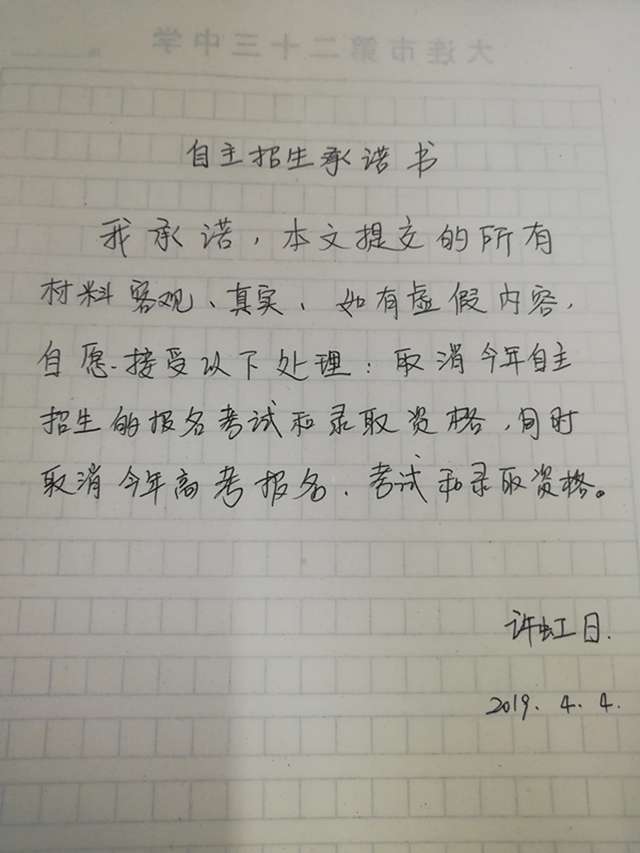 大连市第二十三中学
自主招生承诺书
我承诺，本文提交的所有
材料客观、真实、如有虚假内容，
自愿接受以下处理：取消今年自主
招生的报名考试和录取资格，同时
取消今年高考报名、考试和录取资格。
许虹日.
2019.4.4.